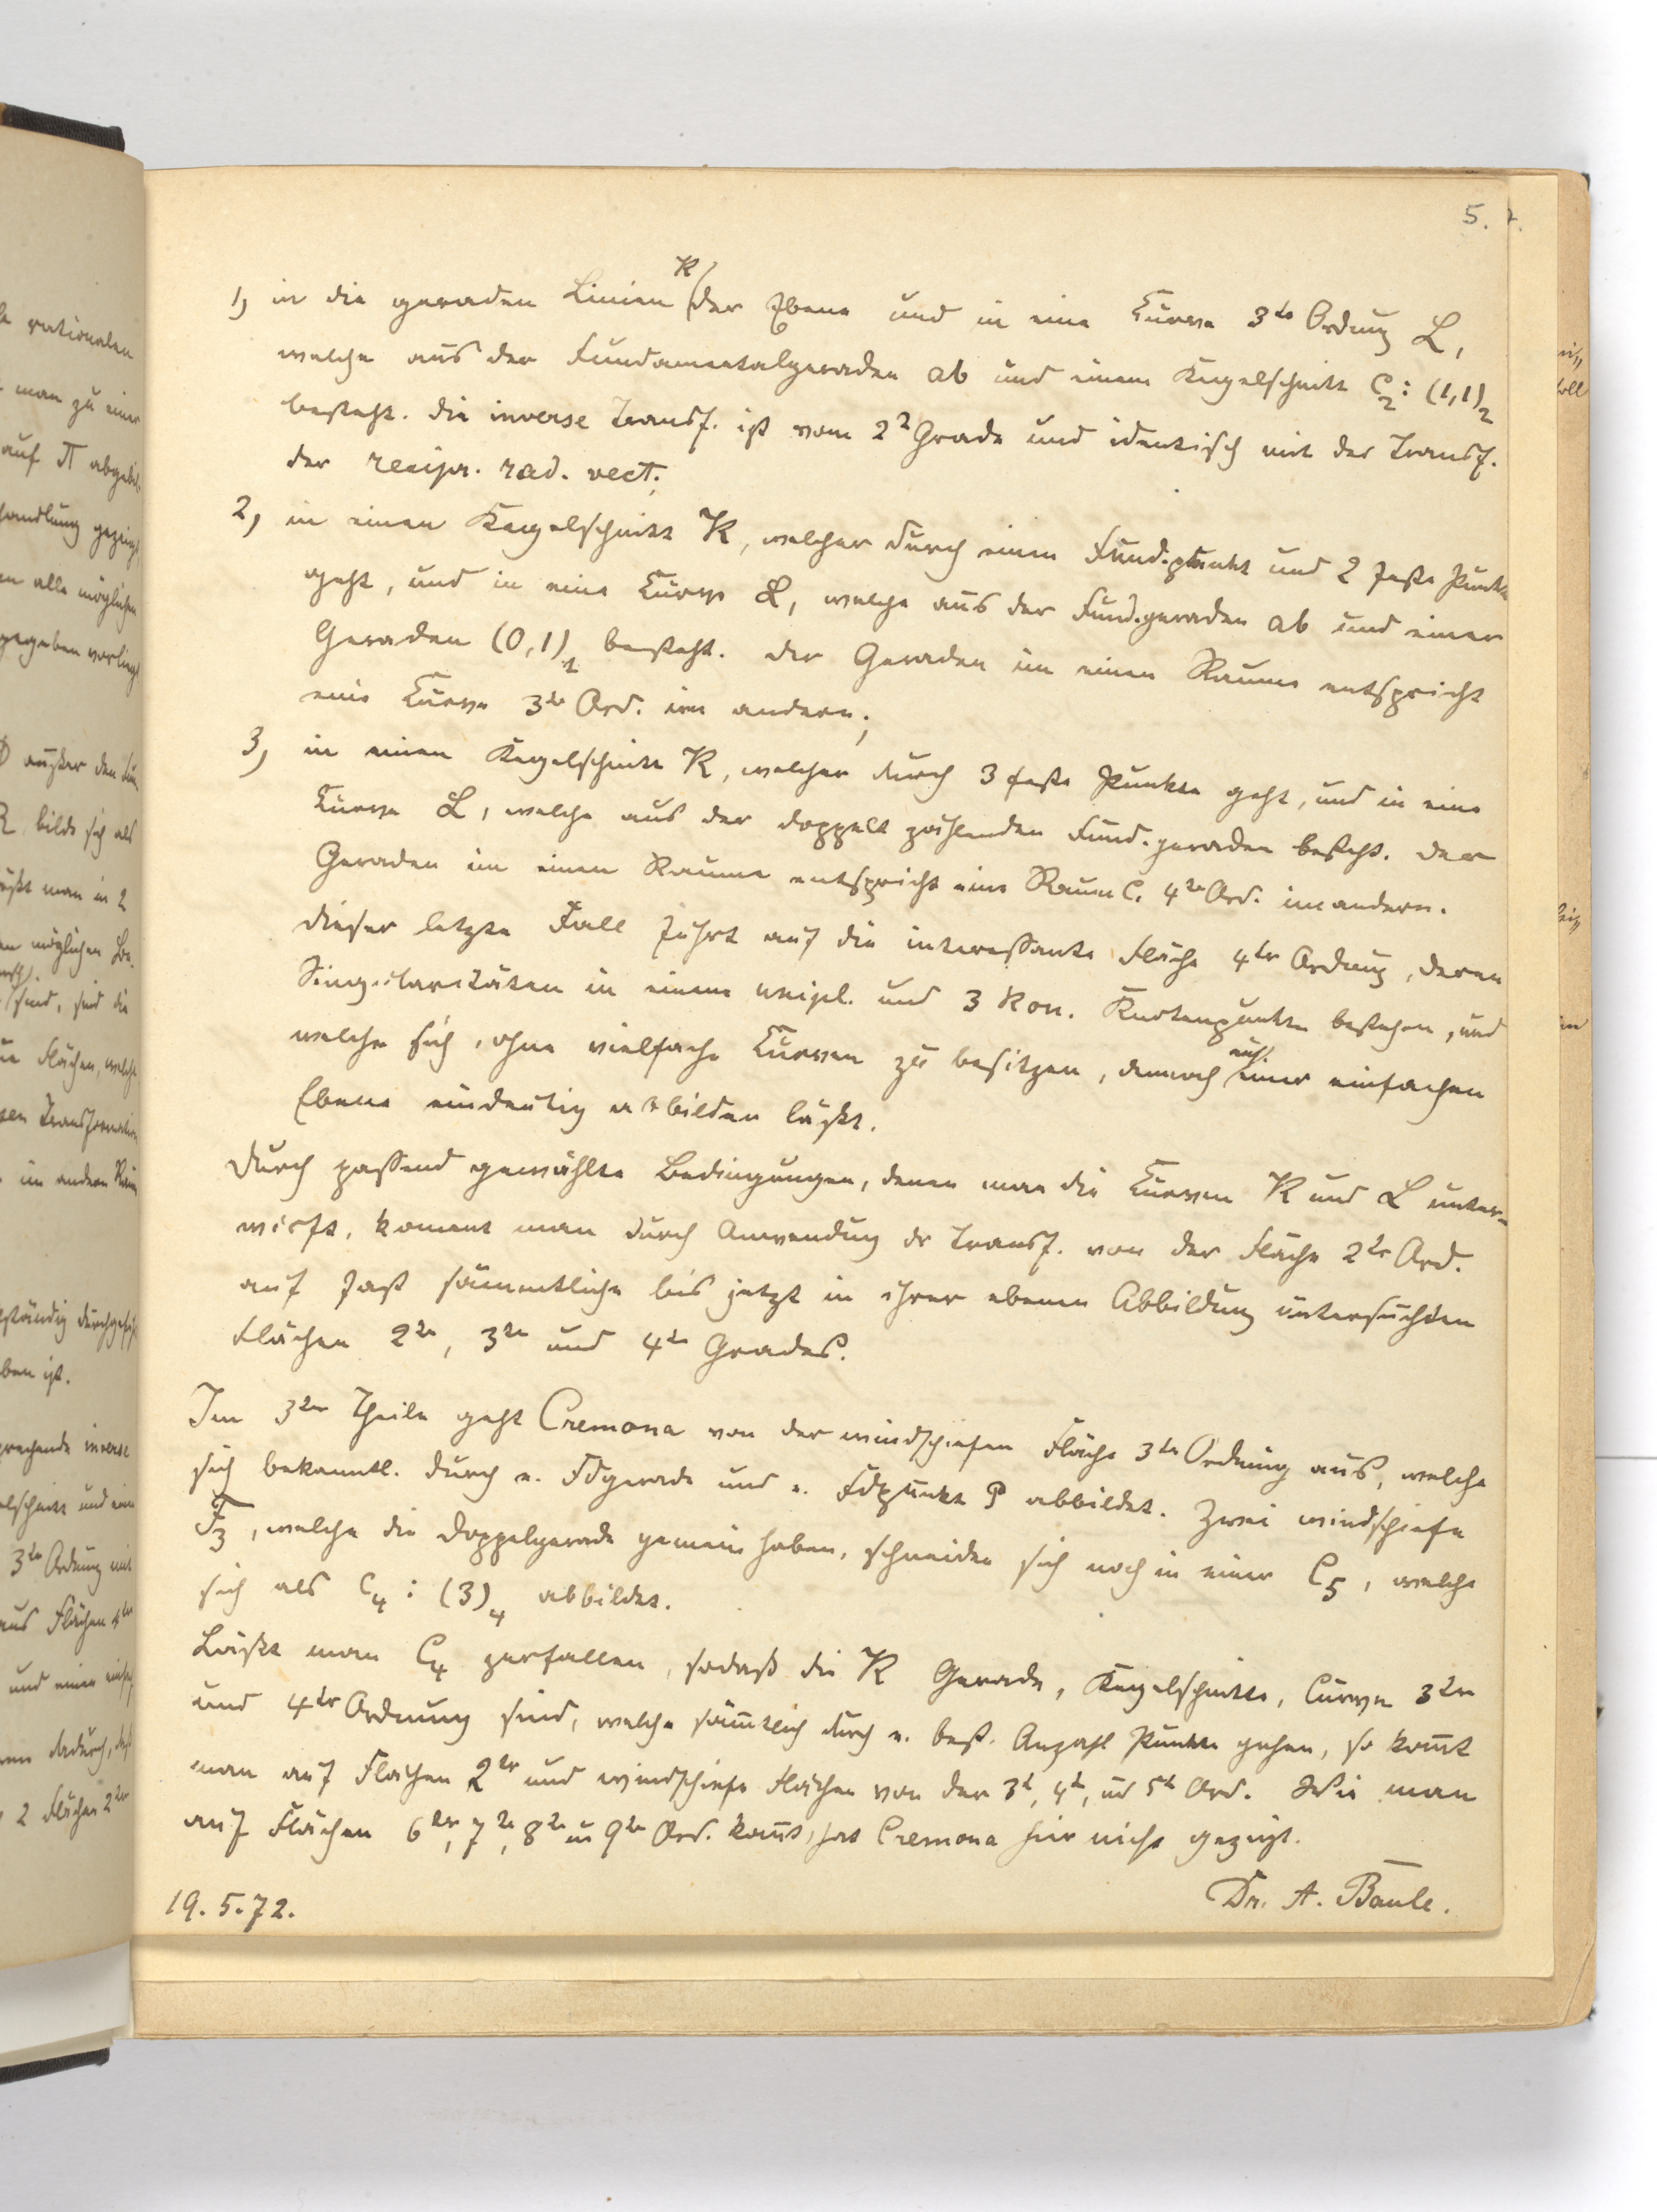 5.
1, in die geraden Linien K der Ebene und in eine Curve 3ter Ordnung L,
welche aus der Fundamentalgeraden ab und einem Kegelschnitt C2: (1,1)2
besteht. Die inverse Transf. ist vom 2n Grade und identisch mit der Transf.
der recipr. rad. vect.;
2, in einen Kegelschnitt K, welcher durch einen Fund.punkt und 2 feste Punkte
geht, und in eine Curve L, welche aus der Fund.geraden ab und einer
Geraden (0,1)1 besteht. Der Geraden im einen Raume entspricht
eine Curve 3ter Ord. im andern;
3, in einen Kegelschnitt K, welcher durch 3 feste Punkte geht, und in eine
Curve L, welche aus der doppelt zählenden Fund.geraden besteht. Der
Geraden im einen Raume entspricht eine Raum C. 4ter Ord. im andern.
Dieser letzte Fall führt auf die interessante Fläche 4ter Ordnung, deren
Singularitäten in einem unipl. und 3 kon. Knotenpunkten bestehen, und
welche sich, ohne vielfache Curven zu besitzen, dennoch auf einer einfachen
Ebene eindeutig abbilden läßt.
Durch passend gewählte Bedingungen, denen man die Curven K und L unter-
wirft, kommt man durch Anwendung der Transf. von der Fläche 2ter Ord.
auf fast sämmtliche bis jetzt in ihrer ebenen Abbildung untersuchten
Flächen 2ten, 3ten und 4ten Grades.
Im 3ten Theile geht Cremona von der windschiefen Fläche 3ter Ordnung aus, welche
sich bekanntl. durch e. Fdgerade und e. Fdpunkt P abbildet. Zwei windschiefe
F3, welche die Doppelgerade gemein haben, schneiden sich noch in einer C5, welche
sich als C4: (3)4 abbildet.
Läßt man C4 zerfallen, sodaß die K Gerade, Kegelschnitte, Curven 3ter
und 4ter Ordnung sind, welche sämtlich durch e. best. Anzahl Punkte gehen, so komt
man auf Flächen 2ter und windschiefe Flächen von der 3t, 4t, ud 5t Ord. Wie man
auf Flächen 6ter, 7ter, 8ter u 9ter Ord. komt, hat Cremona hier nicht gezeigt.
19.5.72.
Dr. A. Baule.